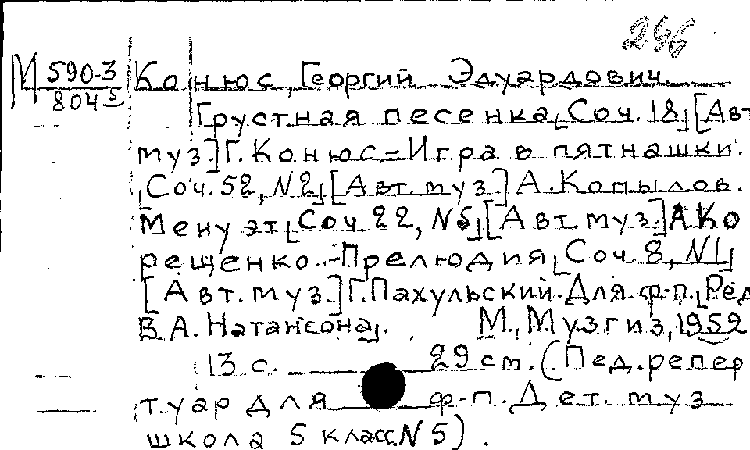 246
М 590-3 Конюс, Георгий Эдуардович.
804 5
Грустная песенка [Соч. 18] [Авт
муз.] Г. Конюс = Игра в пятнашки.
[Соч. 52, N2] [Авт. муз.] А. Копылов.
Менуэт [Соч 22, N5] [Авт муз.] А Ко
рещенко. - Прелюдия [Соч 8, N1]
[Авт. муз.] Г. Пахульский. Для ф-п. [Ред
В.А. Натансона]. М., Музгиз, 1952
13 с. 29 см. (Пед. репер
туар для ф-п. Дет. муз
школа 5 класс N 5).